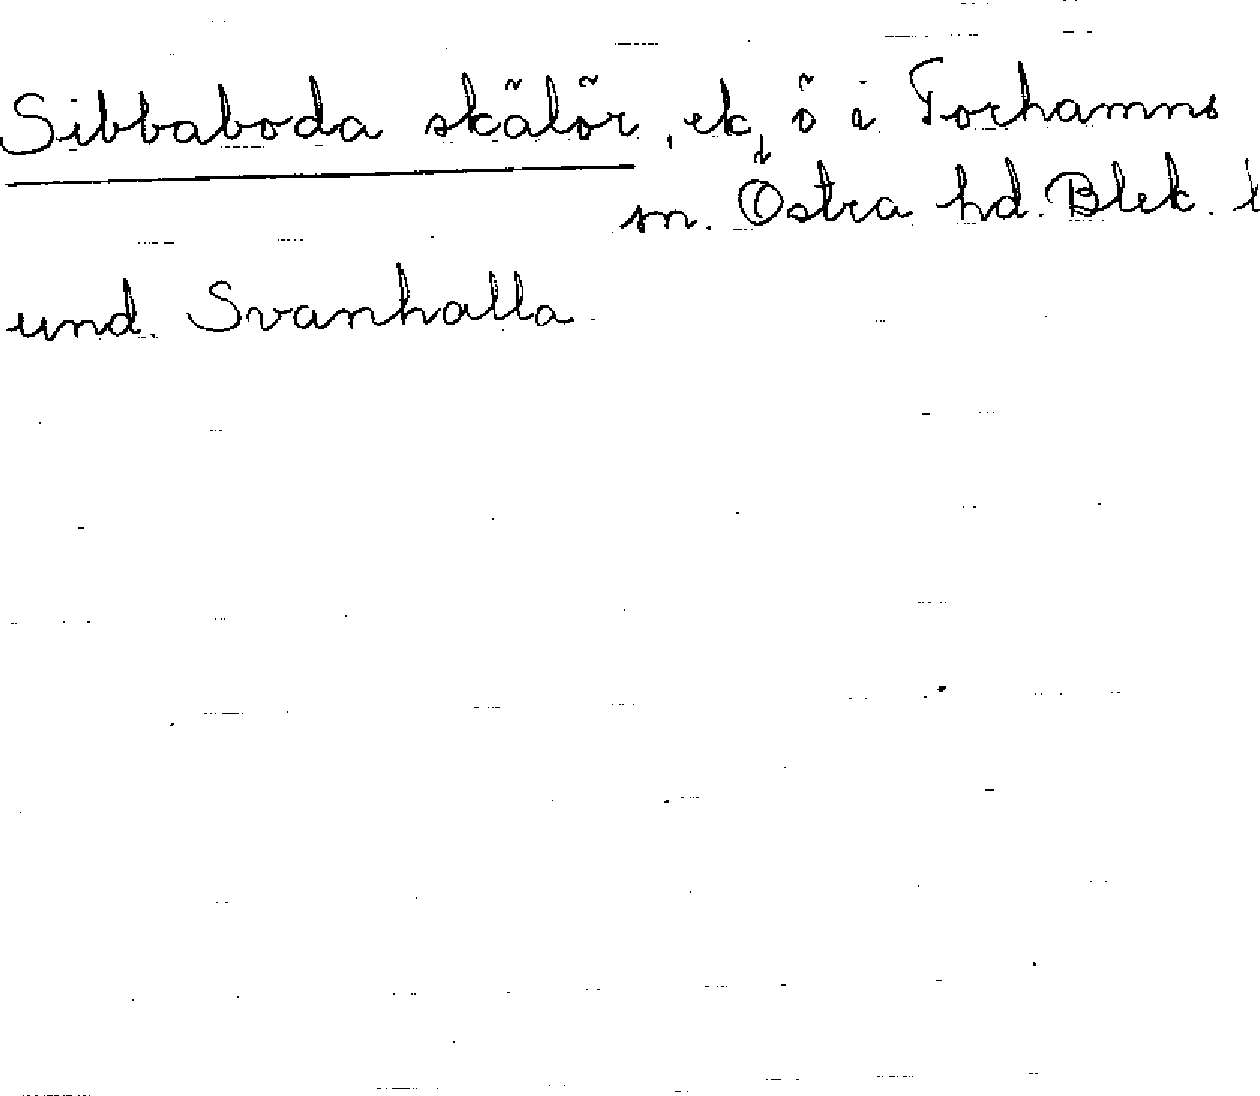 Sibbaboda skälör, ek, ö i Torhamns
sn. Östra hd. Blek. l
und. Svanhalla